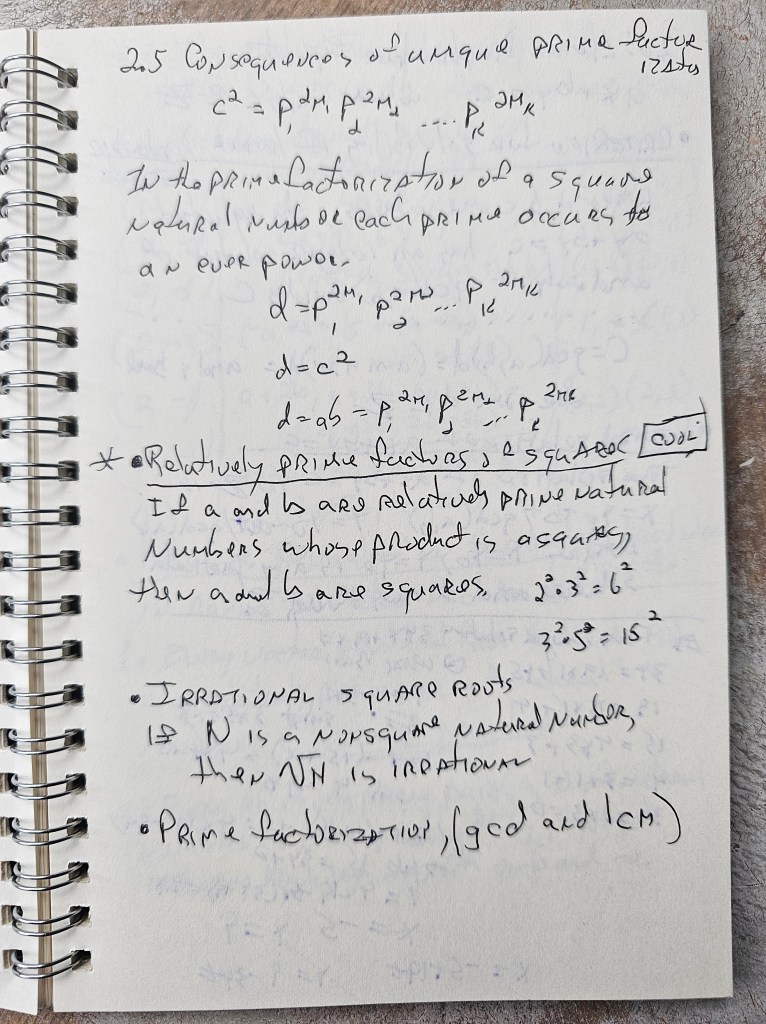 2.5 Consequences of unique prime factor
ization
c² = p₁^2m₁ p₂^2m₂ .... p_k^2m_k
In the prime factorization of a square
natural number each prime occurs to
an even power.
d = p₁^2m₁ p₂^2m₂ ... p_k^2m_k
d = c²
d = ab = p₁^2m₁ p₂^2m₂ ... p_k^2m_k
* • Relatively prime factors of a square COOL
If a and b are relatively prime natural
numbers whose product is a square,
then a and b are squares. 2²·3² = 6²
3²·5² = 15²
• IRRATIONAL SQUARE ROOTS
If N is a nonsquare natural number,
then √N is IRRATIONAL
• Prime factorization, (gcd and lcm)